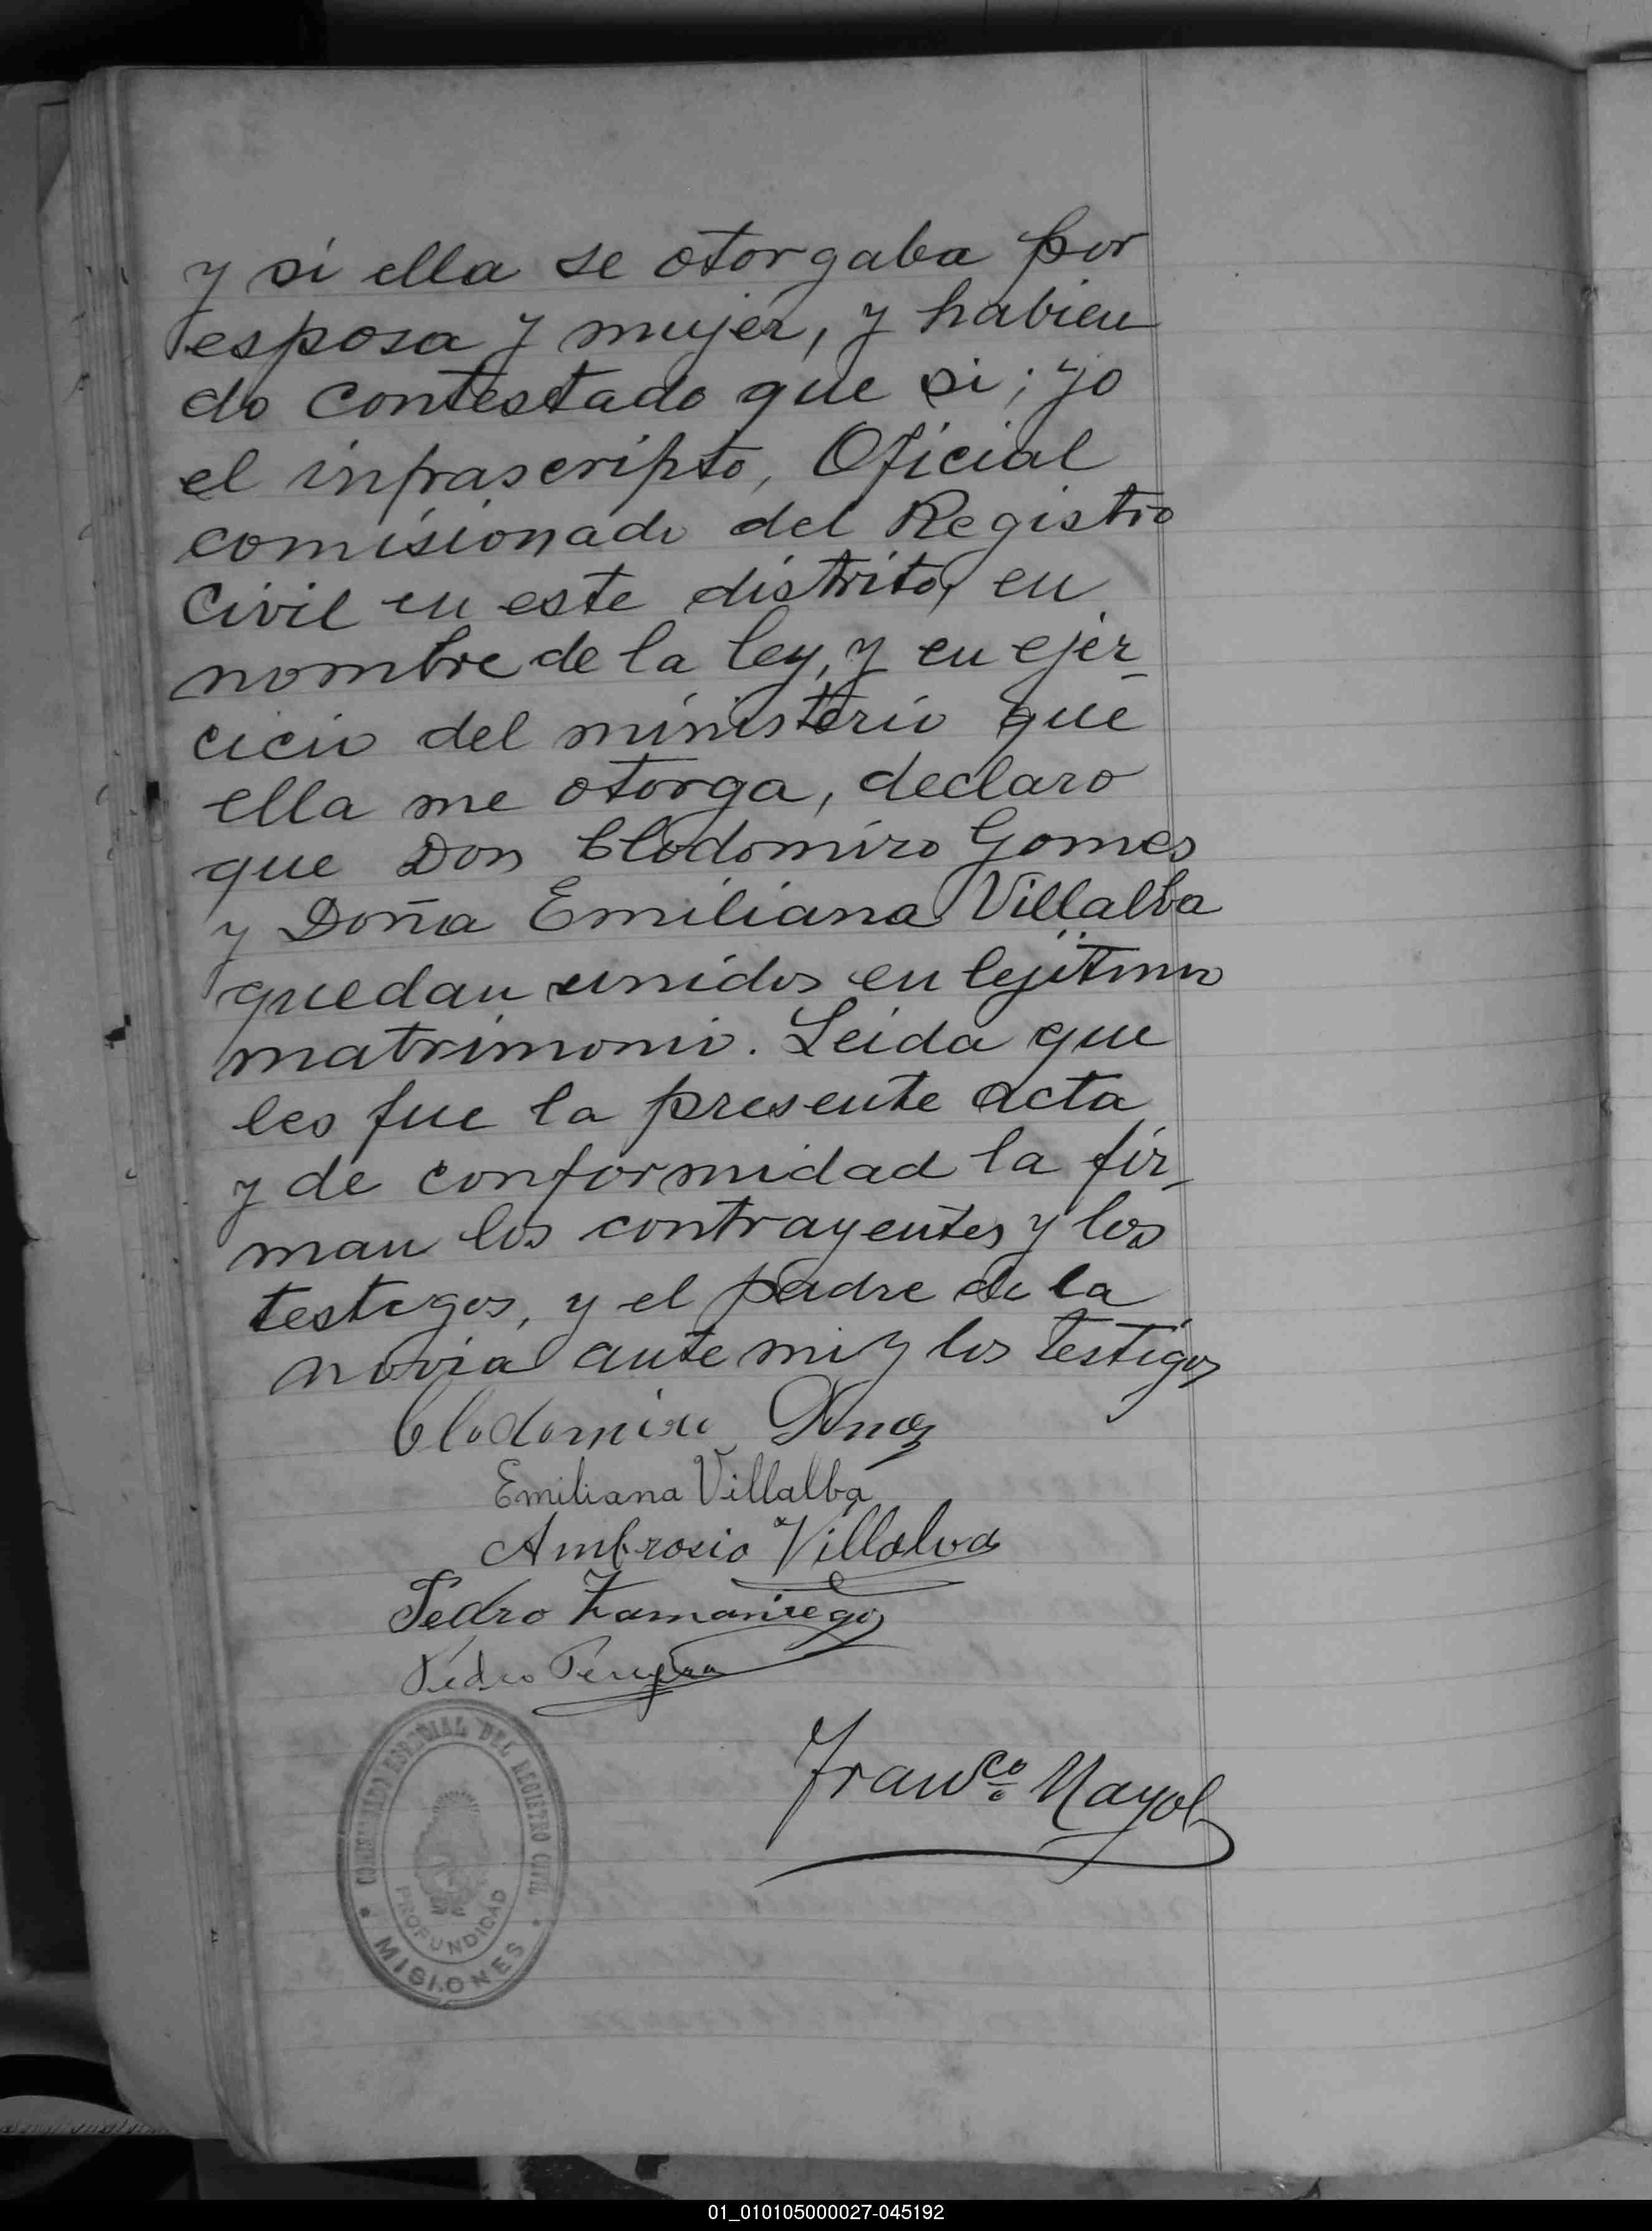 y si ella se otorgaba por
esposa y mujer, y habien
do contestado que si; yo
el infrascripto, Oficial
comisionado del Registro
Civil en este distrito, en
nombre de la ley, y en ejer-
cicio del ministerio que
ella me otorga, declaro
que Don Clodomiro Gomes
y Doña Emiliana Villalba
quedan unidos en lejitimo
matrimonio. Leida que
les fue la presente acta
y de conformidad la fir-
man los contrayentes y los
testigos, y el padre de la
novia ante mi y los testigos
Clodomiro
Emiliana Villalba
Ambrosio Villalva
Pedro Zamaniego
Pedro Pereyra
Franco Mayol
COMISARIADO ESPECIAL DEL REGISTRO CIVIL
PROFUNDIDAD
MISIONES
01_010105000027-045192